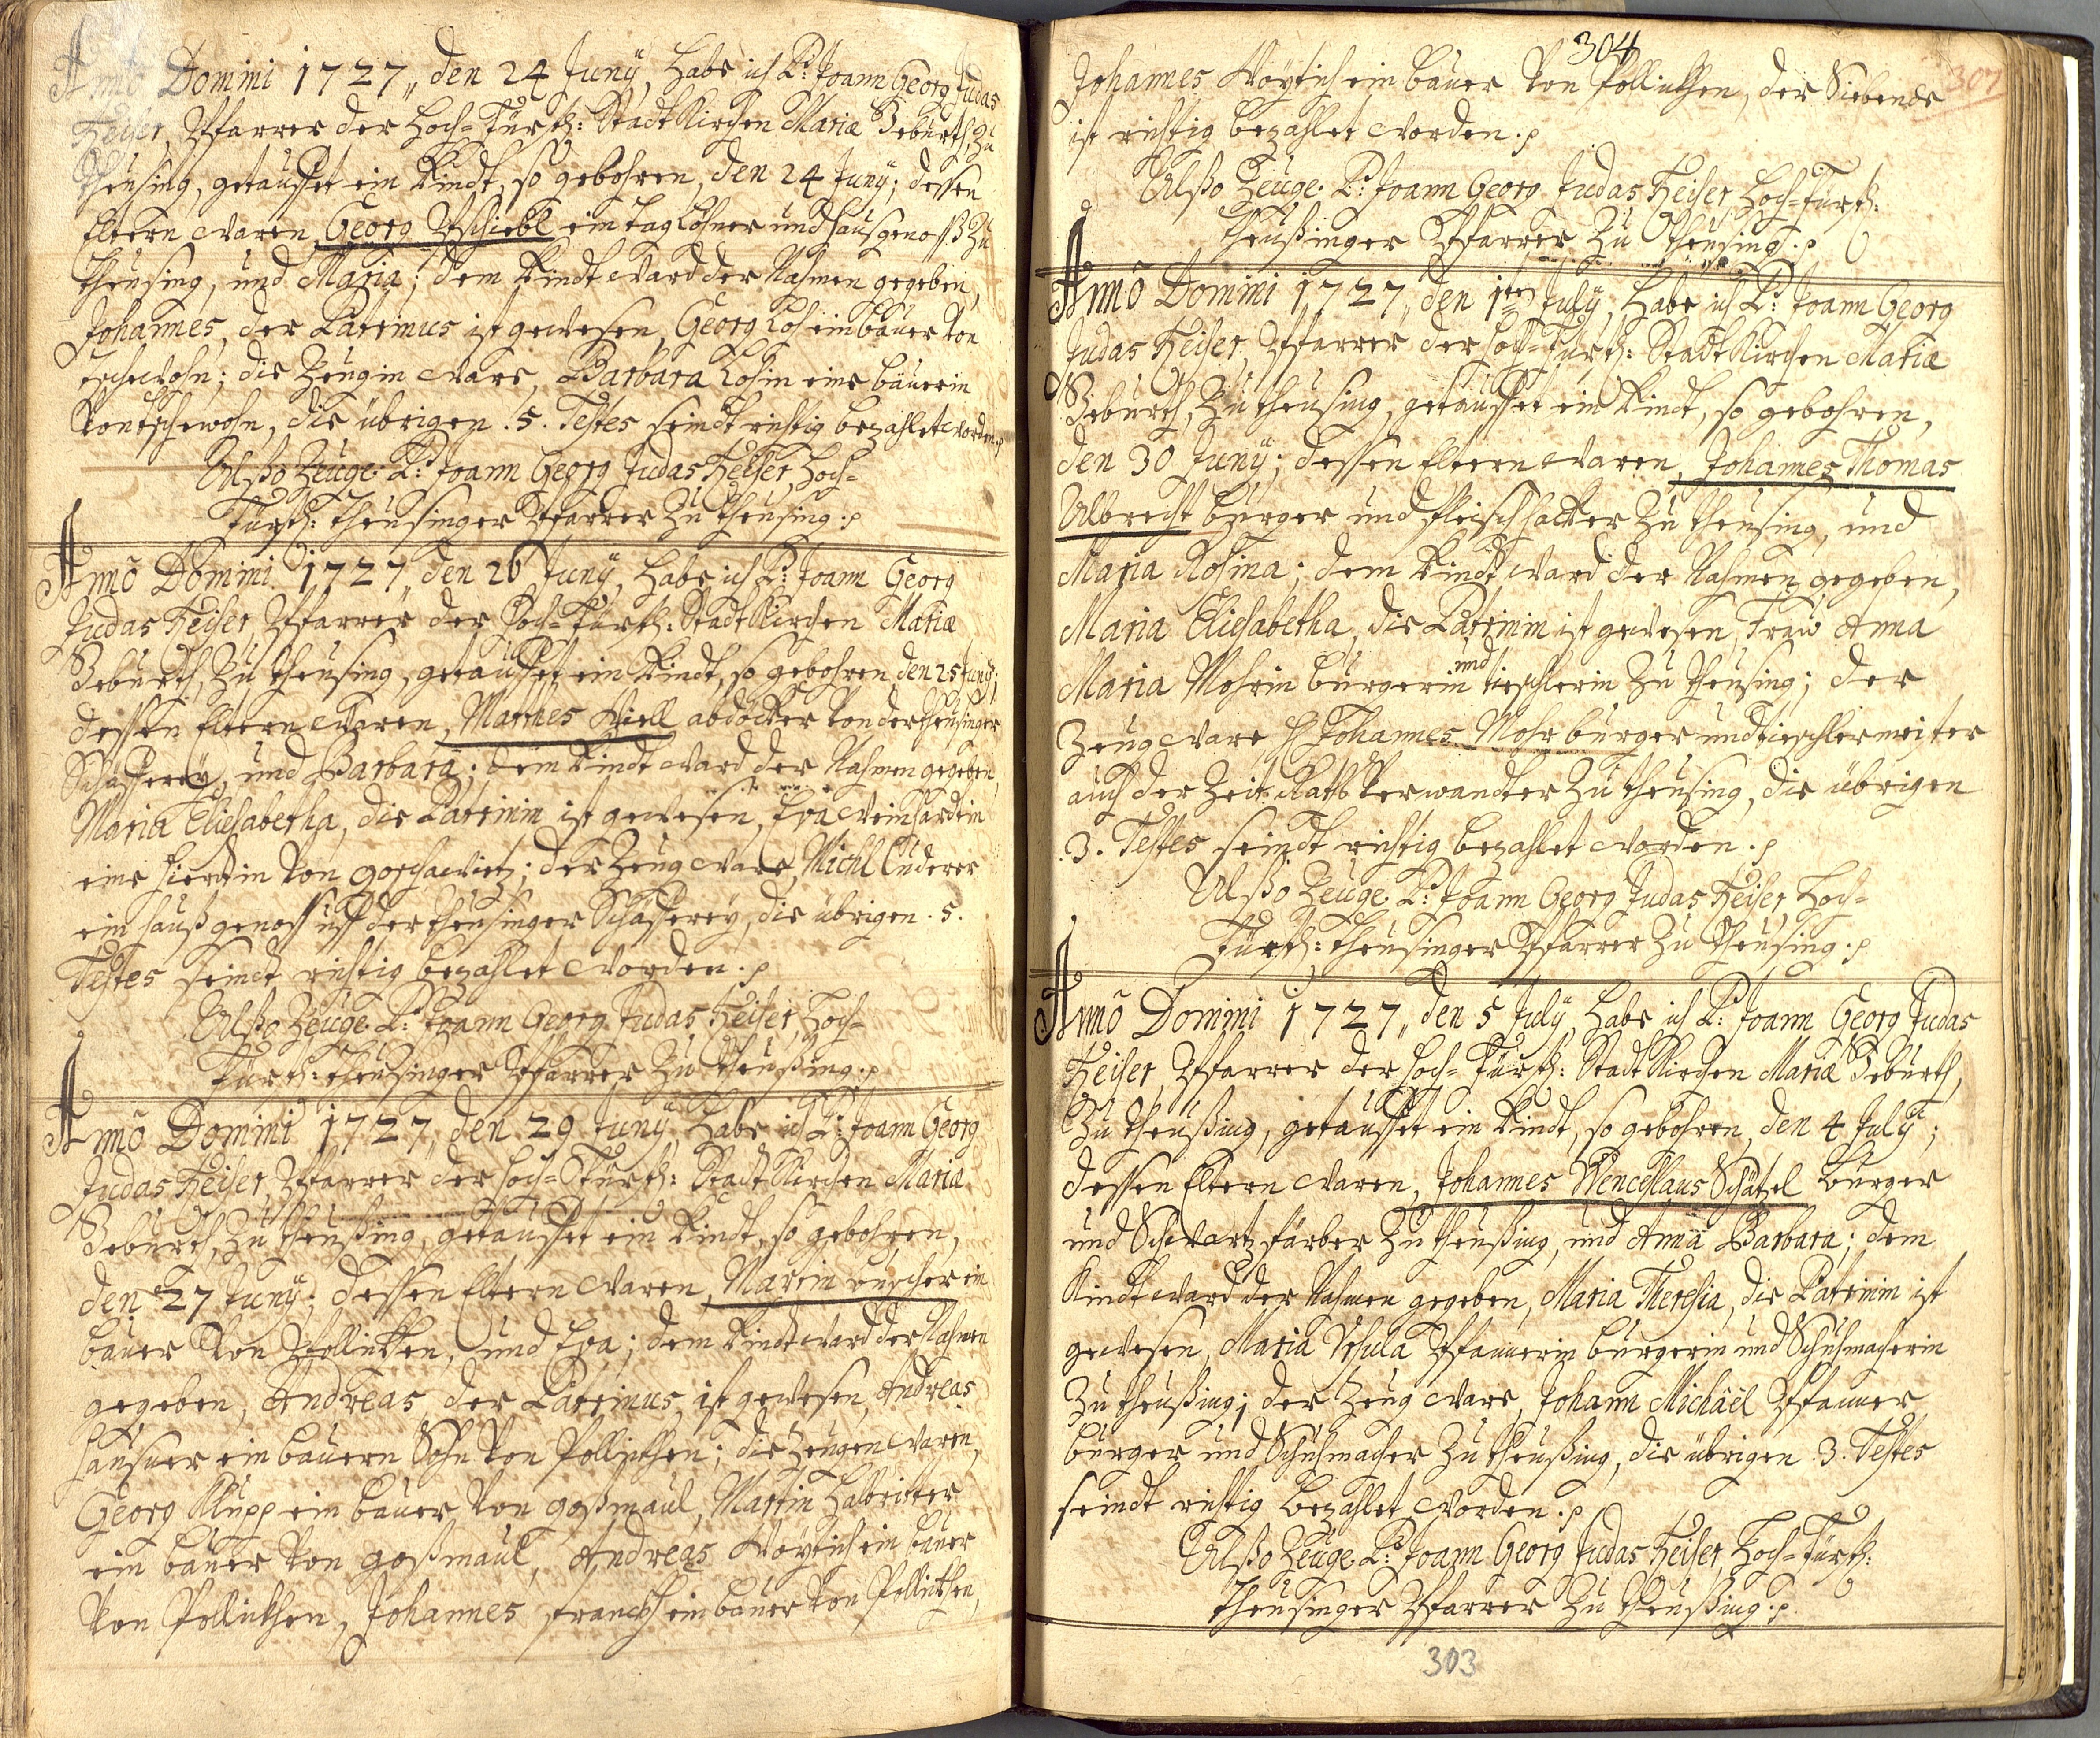 Anno Domini 1727,, den 24 Junÿ, habe ich P: Joann Georg Judas
Heiser, Pfarrer der Hoch-Fürstl: Stadt Kirchen Mariæ Geburth, zu
Theusing, getauffet ein Kindt, so gebohren, den 24 Junÿ; dessen
Eltern waren, Georg Pschiebl ein taglöhner und hausgenosß zu
Theusing, und Maria; dem Kindt ward der Nahmen gegeben,
Johannes, der Patrinus ist gewesen, Georg Loh ein bauer von
tschewohn; die Zeugin ware, Barbara Lohin eine bäuerin
von tschewohn, die übrigen .5. Testes seindt richtig bezahlet worden.
Alßo Zeuge P: Joann Georg Judas Heiser, Hoch-
Fürstl: Theusinger Pfarrer zu Theusing.
Anno Domini 1727,, den 26 Junÿ, habe ich P: Joann Georg
Judas Heiser, Pfarrer der Hoch-Fürstl: Stadt Kirchen Mariæ
Geburth, zu Theusing, getauffet ein Kindt, so gebohren, den 25 Junÿ;
dessen Eltern waren, Mathes Kiell abdöcker von der Theusinger
Schäfferey, und Barbara; dem Kindt ward der Nahmen gegeben,
Maria Eliesabetha, die Patrinin ist gewesen, Eva Reinhardtin
eine Hierdtin von gorschawietz; der Zeug ware, Michl
ein haußgenoss uff der Theusinger Schäfferey, die übrigen .5.
Testes seindt richtig bezahlet worden.
Alßo Zeuge P: Joann Georg Judas Heiser, Hoch-
Fürstl: Theusinger Pfarrer zu Theußing.
Anno Domini 1727,, den 29 Junÿ, habe ich P: Joann Georg
Judas Heiser, Pfarrer der Hoch-Fürstl: Stadt Kirchen Maria
Geburth, zu Theußing, getauffet ein Kindt, so gebohren,
den 27 Junÿ; dessen Eltern waren, Martin ein
bauer von Pollikken, und Eva; dem Kindt ward der Nahmen
gegeben, Andreas, der Patrinus, ist gewesen, Andreas
Hausner ein bauern Sohn von Pollikhen; die Zeugen waren,
Georg Klupp ein bauer von goßmaul, Martin Habritter
ein bauer von goßmaul, Andreas Woytich ein bauer
von Pollikhen, Johannes Franckh ein bauer von Pollikhen,
304
307
Johannes Woytich ein bauer von Pollikhen, der Siebende
ist richtig bezahlet worden.
Alßo Zeuge P: Joann Georg Judas Heiser Hoch-Fürstl:
Theußinger Pfarrer zu Theusing.
Anno Domini 1727,, den 1ten July, habe ich P: Joann Georg
Judas Heiser, Pfarrer der Hoch-Fürstl: Stadt Kirchen Mariæ
Geburth, zu Theusing, getauffet ein Kindt, so gebohren,
den 30 Junÿ; dessen Eltern waren, Johannes Thomas
Albrecht burger und fleischhacker zu Theusing, und
Maria Rosina; dem Kindt ward der Nahmen gegeben,
Maria Eliesabetha, die Patrinin ist gewesen, Frau Anna
Maria Mohrin burgerin und tieschlerin zu Theusing; der
Zeug ware H Johannes Mohr burger und tieschlermeister
auch der Zeit Raths Verwandter zu Theusing, die übrigen
.3. Testes seindt richtig bezahlet worden.
Alßo Zeuge P: Joann Georg Judas Heiser, Hoch-
Fürstl: Theusinger Pfarrer zu Theusing.
Anno Domini 1727,, den 5 July, habe ich P: Joann Georg Judas
Heiser, Pfarrer der Hoch-Fürstl: Stadt Kirchen Mariæ Geburth,
zu Theußing, getauffet ein Kindt, so gebohren, den 4 July;
dessen Eltern waren, Johannes Wenceslaus Schätzel burger
und Schwartzfärber zu Theußing, und Anna Barbara; dem
Kindt ward der Nahmen gegeben, Maria Theresia, die Patrinin ist
gewesen, Maria Vrsula Pfannerin burgerin und Schuhmacherin
zu Theußing; der Zeug ware, Johann Michäel Pfanner
burger und Schuhmacher zu Theußing, die übrigen .3. Testes
seindt richtig bezahlet worden.
Alßo Zeuge P: Joann Georg Judas Heiser, Hoch-Fürstl:
Theusinger Pfarrer zu Theußing.
303